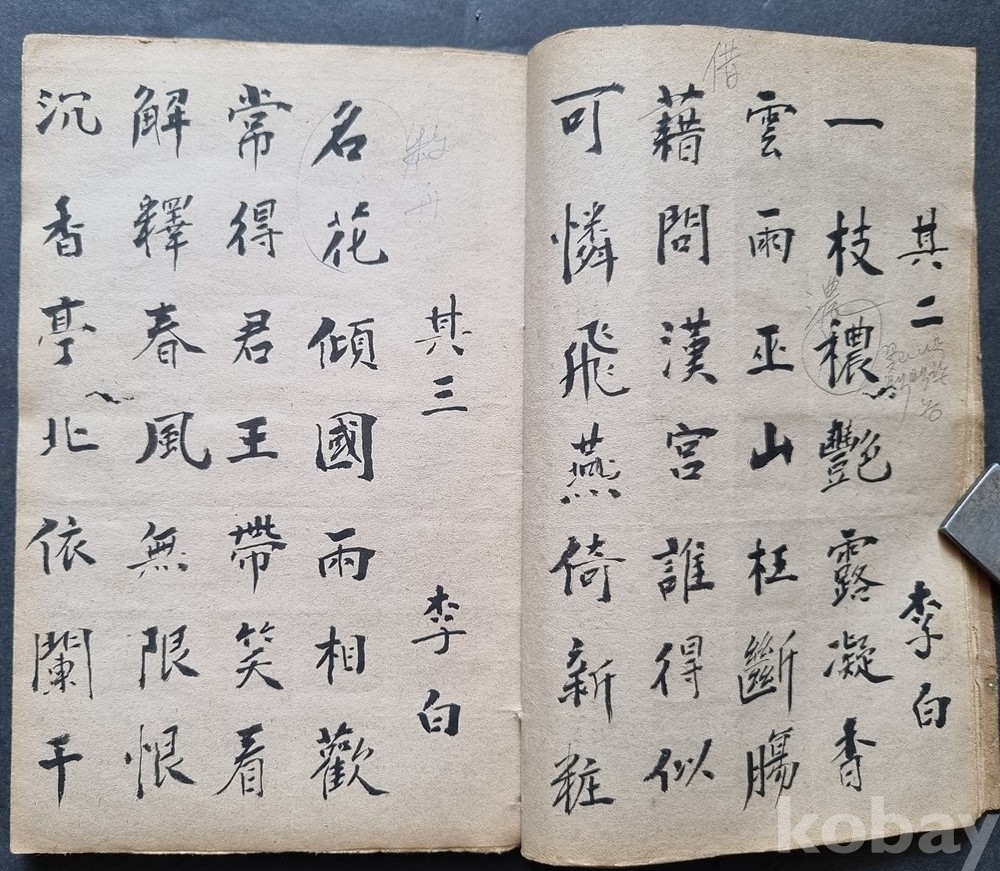 其二 李白
一枝穠艷露凝香
濃
雲雨巫山枉斷膓
借
藉問漢宮誰得似
可憐飛燕倚新粧
其三 李白
名花傾國雨相歡
常得君王帶笑看
解釋春風無限恨
沉香亭北依闌干
kobay